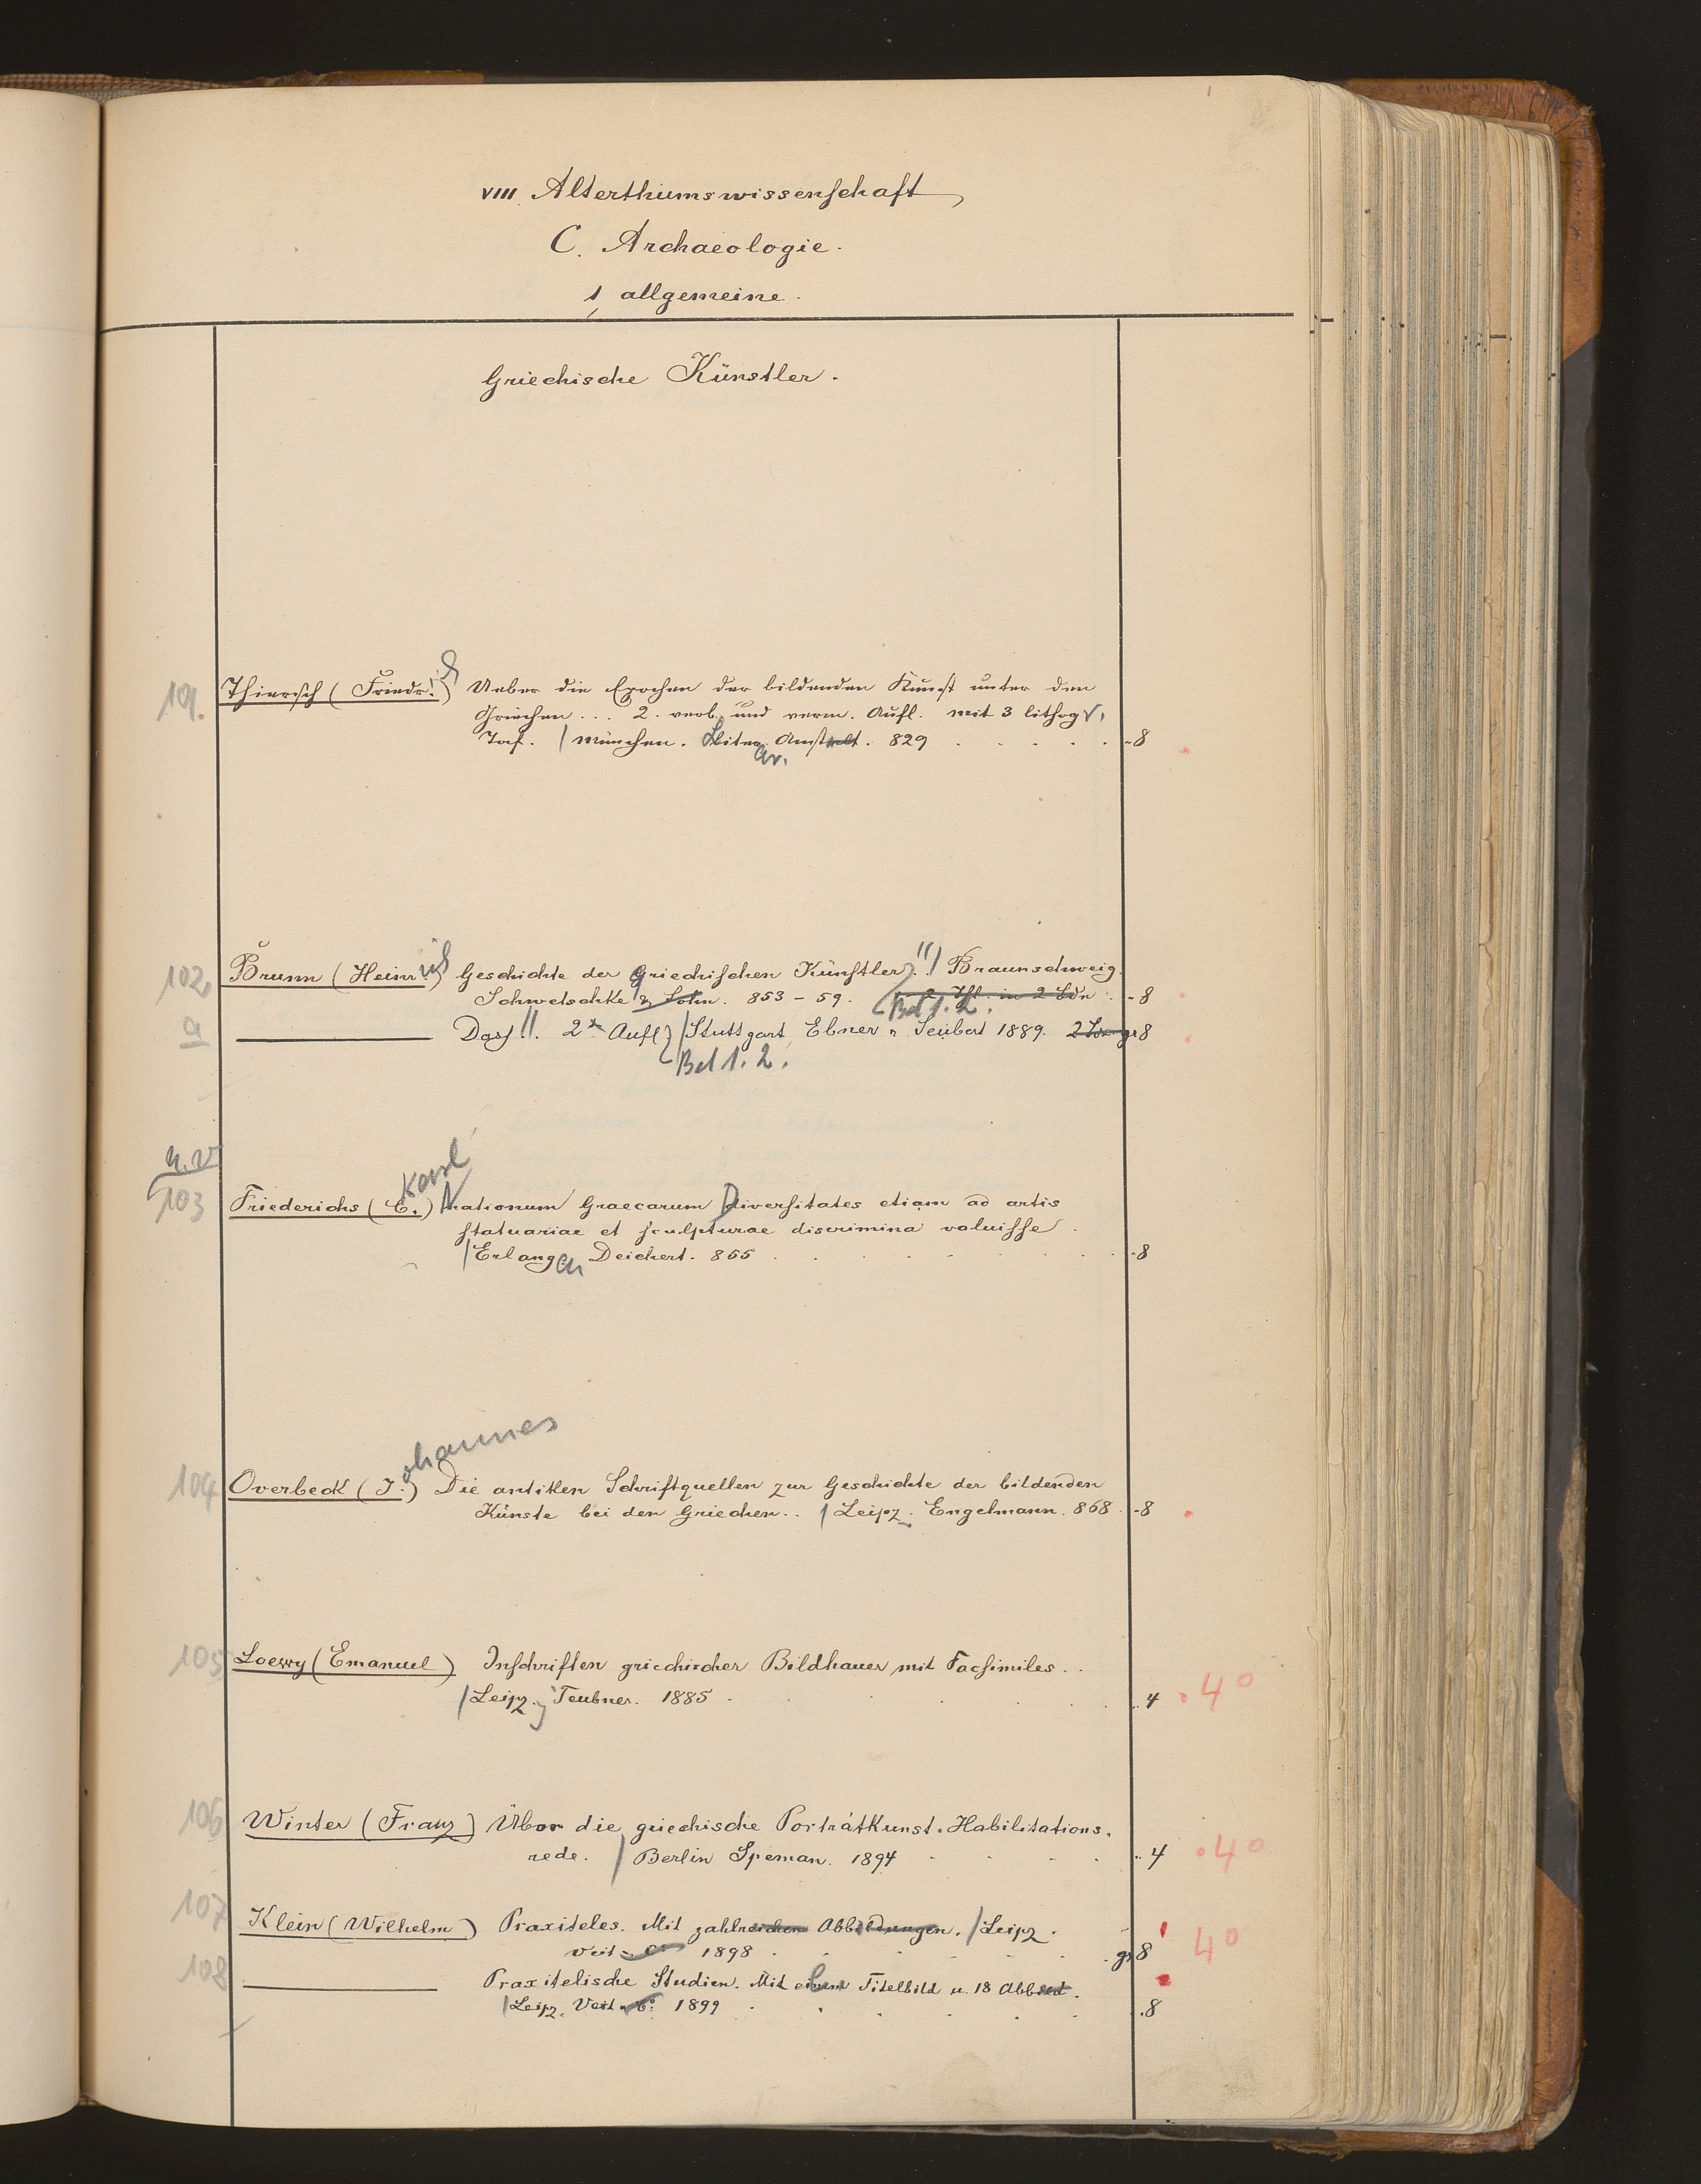 VIII. Alterthumswissenschaft
C. Archaeologie.
1, allgemeine.
Griechische Künstler.
101. Thiersch (Friedr.) Ueber die Epochen der bildenden Kunst unter den
Griechen... 2. verb. und verm. Aufl. mit 3 lithogr.
Taf. / München. Literar. Anstalt. 829 8
102. Brunn (Heinrich) Geschichte der griechischen Künstler !! / Braunschweig.
Schwetschke & Sohn. 853-59. 2 Thl. in 2 Bdn. 8
Bd 1. 2.
a Dass!!. 2te Aufl / Stuttgart, Ebner u Seubert 1889. gr 8
Bd 1. 2.
n. v
Karl
103 Friederichs (C.) Nationum Graecarum Diversitates etiam ad artis
statuariae et sculpturae discrimina valuisse.
/ Erlangen Deichert. 855 8
ohannes
104 Overbeck (J.) Die antiken Schriftquellen zur Geschichte der bildenden
Künste bei den Griechen.. / Leipz. Engelmann. 868. 8
105 Loewy (Emanuel) Inschriften griechischer Bildhauer mit Facsimiles..
/ Leipz. Teubner. 1885. 4 4°
106 Winter (Franz) Über die griechische Porträtkunst. Habilitations-
rede. / Berlin Speman. 1894 4 4°
107 Klein (Wilhelm) Praxiteles. Mit zahlreichen Abbildungen. / Leipz.
Veit u. C° 1898 gr 8 4°
108 Praxitelische Studien. Mit einem Titelbild u. 18 Abbild.
/ Leipz. Veit u. C° 1899 8